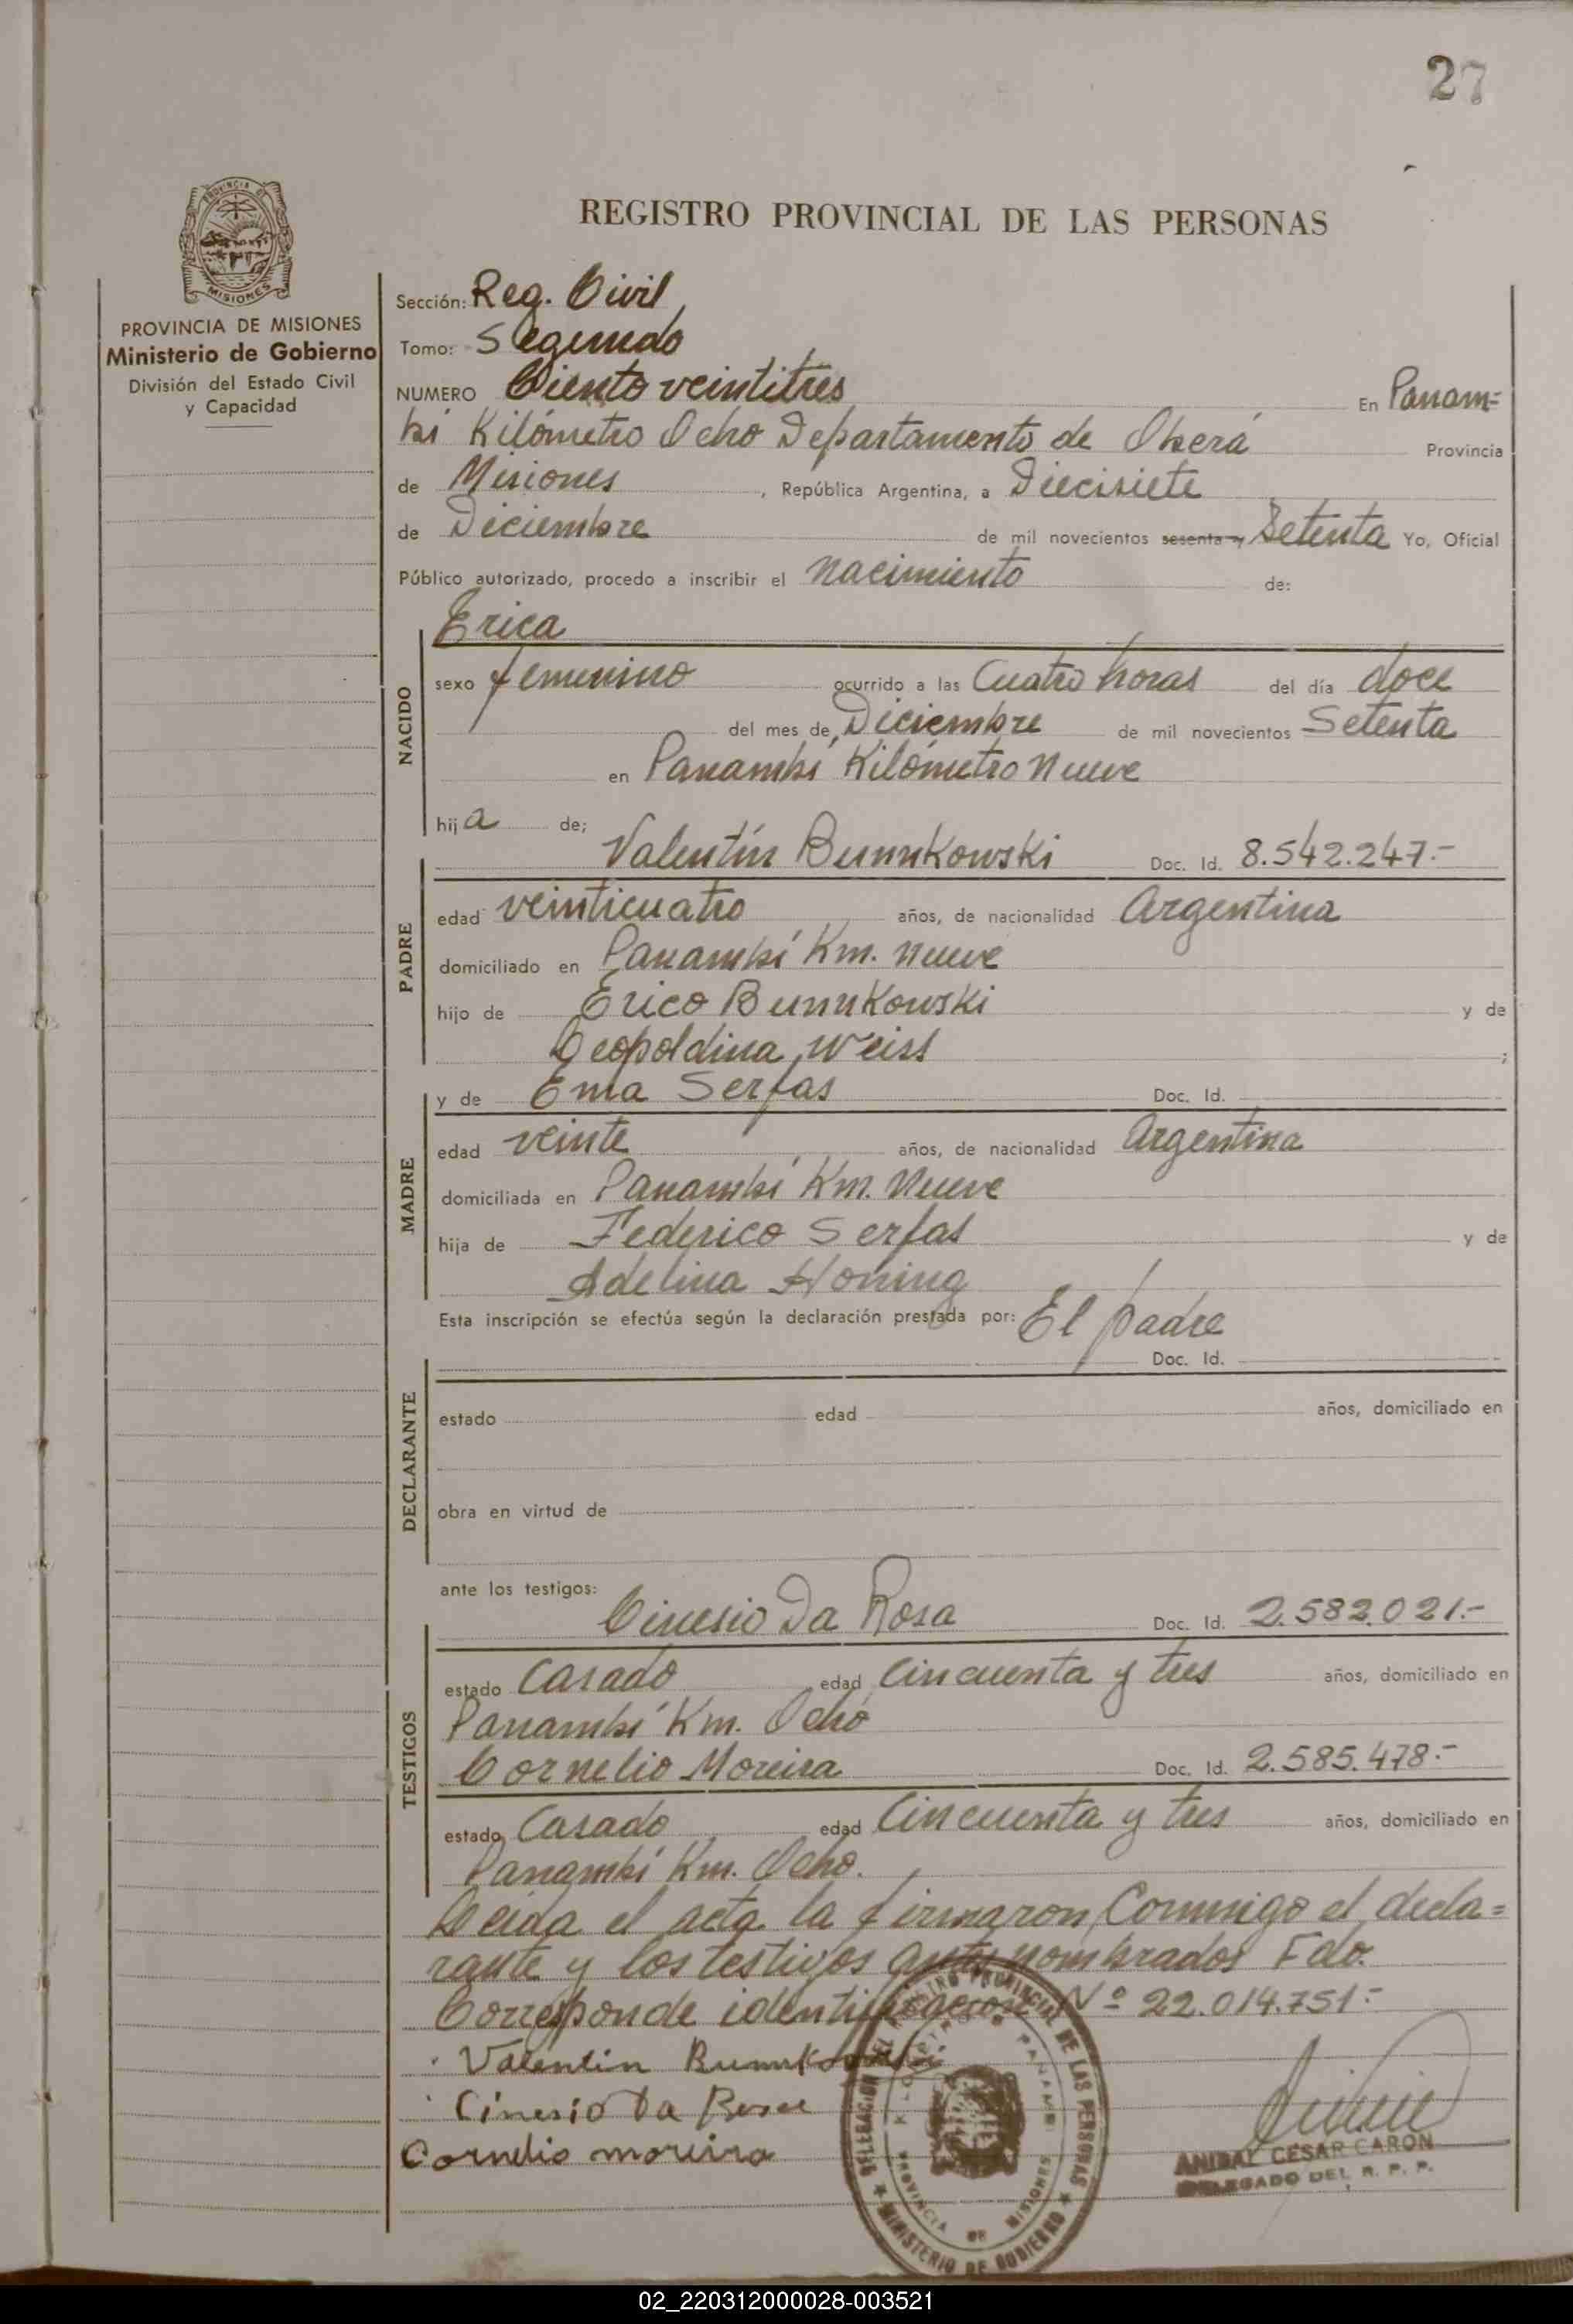 27
REGISTRO PROVINCIAL DE LAS PERSONAS
PROVINCIA DE MISIONES
PROVINCIA DE MISIONES
Ministerio de Gobierno
División del Estado Civil
y Capacidad
Sección: Reg. Civil
Tomo: Segundo
NUMERO Ciento veintitres En Panam=
bí Kilómetro Ocho Departamento de Oberá Provincia
de Misiones, República Argentina, a Diecisiete
de Diciembre de mil novecientos sesenta y Setenta Yo, Oficial
Público autorizado, procedo a inscribir el nacimiento de:
Erica
NACIDO
sexo femenino ocurrido a las Cuatro horas del día doce
del mes de Diciembre de mil novecientos Setenta
en Panambí Kilómetro nueve
hija de;
Valentín Bunnkowski Doc. Id. 8.542.247.-
PADRE
edad veinticuatro años, de nacionalidad Argentina
domiciliado en Panambí Km. nueve
hijo de Erico Bunnkowski y de
Leopoldina Weiss ;
y de Ema Serfas Doc. Id.
MADRE
edad veinte años, de nacionalidad Argentina
domiciliada en Panambí Km. Nueve
hija de Federico Serfas y de
Adelina Honing
Esta inscripción se efectúa según la declaración prestada por: El padre
Doc. Id.
DECLARANTE
estado edad años, domiciliado en
obra en virtud de
ante los testigos:
Cinesio Da Rosa Doc. Id. 2.582.021.-
TESTIGOS
estado Casado edad Cincuenta y tres años, domiciliado en
Panambí Km. Ocho
Cornelio Moreira Doc. Id. 2.585.478.-
estado Casado edad Cincuenta y tres años, domiciliado en
Panambí Km. Ocho.
Leida el acta la firmaron Conmigo el decla=
rante y los testigos antes nombrados Fdo.
Corresponde identificacion Nº 22.014.751.-
Valentin Bunnkowski
Cinesio Da Rosa
Cornelio moreira
DELEGACION DEL REGISTRO PROVINCIAL DE LAS PERSONAS
PANAMBI
PROVINCIA DE MISIONES
MINISTERIO DE GOBIERNO
ANIBAL CESAR CARON
DELEGADO DEL R. P. P.
02_220312000028-003521